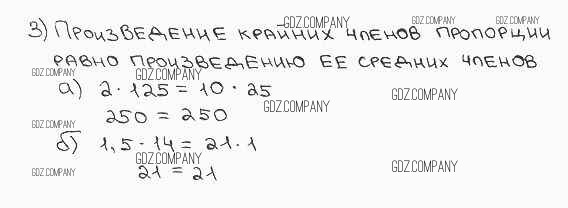 3) ПРОИЗВЕДЕНИЕ КРАЙНИХ ЧЛЕНОВ ПРОПОРЦИИ
РАВНО ПРОИЗВЕДЕНИЮ ЕЕ СРЕДНИХ ЧЛЕНОВ
а) 2 · 125 = 10 · 25
250 = 250
б) 1,5 · 14 = 21 · 1
21 = 21
GDZ.COMPANY
GDZ.COMPANY
GDZ.COMPANY
GDZ.COMPANY
GDZ.COMPANY
GDZ.COMPANY
GDZ.COMPANY
GDZ.COMPANY
GDZ.COMPANY
GDZ.COMPANY
GDZ.COMPANY